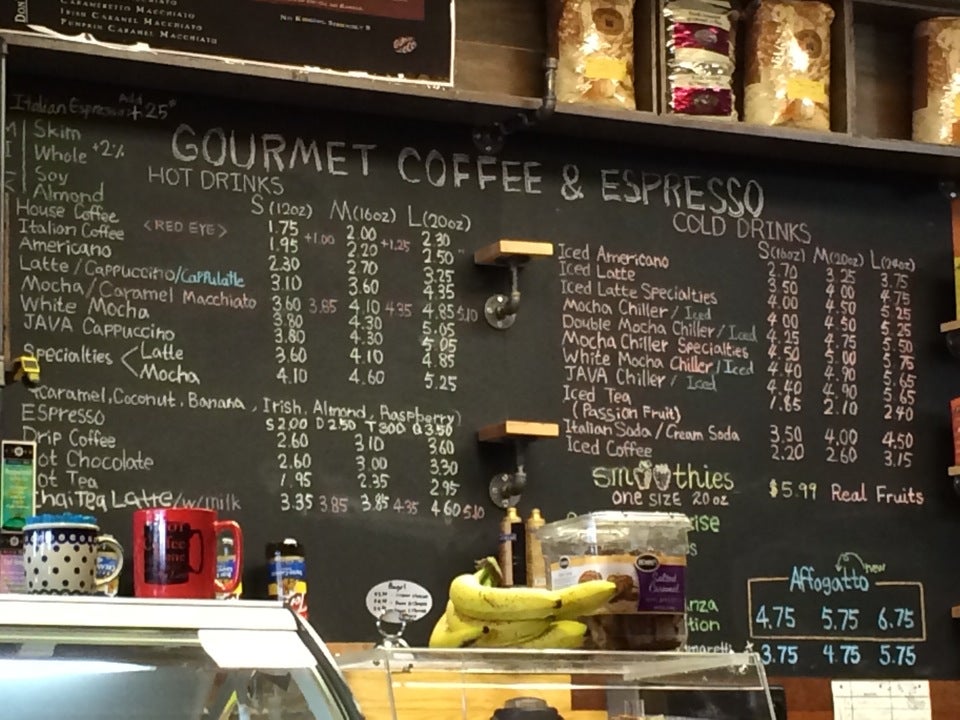 Caramel Macchiato
Irish Caramel Macchiato
Pumpkin Caramel Macchiato
Italian Espresso Add +.25
Skim
Whole +2%
Soy
Almond
GOURMET COFFEE & ESPRESSO
HOT DRINKS
S (12oz) M(16oz) L(20oz)
House Coffee 1.75 2.00 2.30
Italian Coffee <RED EYE> 1.95 +1.00 2.20 +1.25 2.50
Americano 2.30 2.70 3.25
Latte/Cappuccino/Cappulatte 3.10 3.60 4.35
Mocha/Caramel Macchiato 3.60 3.85 4.10 4.35 4.85 5.10
White Mocha 3.80 4.30 5.05
JAVA Cappuccino 3.80 4.30 5.05
Specialties < Latte 3.60 4.10 4.85
Mocha 4.10 4.60 5.25
Caramel, Coconut, Banana, Irish, Almond, Raspberry)
ESpresso S2.00 D2.50 T3.00 Q3.50
Drip Coffee 2.60 3.10 3.60
ot Chocolate 2.60 3.00 3.30
ot Tea 1.95 2.35 2.95
hai Tea Latte/w/milk 3.35 3.85 3.85 4.35 4.60 5.10
COLD DRINKS
S(16oz) M(20oz) L(24oz)
Iced Americano 2.70 3.25 3.75
Iced Latte 3.50 4.00 4.75
Iced Latte Specialties 4.00 4.50 5.25
Mocha Chiller / Iced 4.00 4.50 5.25
Double Mocha Chiller / Iced 4.25 4.75 5.50
Mocha Chiller Specialties 4.50 5.00 5.75
White Mocha Chiller / Iced 4.40 4.90 5.65
JAVA Chiller / Iced 4.40 4.90 5.65
Iced Tea 1.85 2.10 2.40
(Passion Fruit)
Italian Soda / Cream Soda 3.50 4.00 4.50
Iced Coffee 2.20 2.60 3.15
smoothies
one size 20 oz $5.99 Real Fruits
new
Affogatto
4.75 5.75 6.75
3.75 4.75 5.75
Salted
Caramel